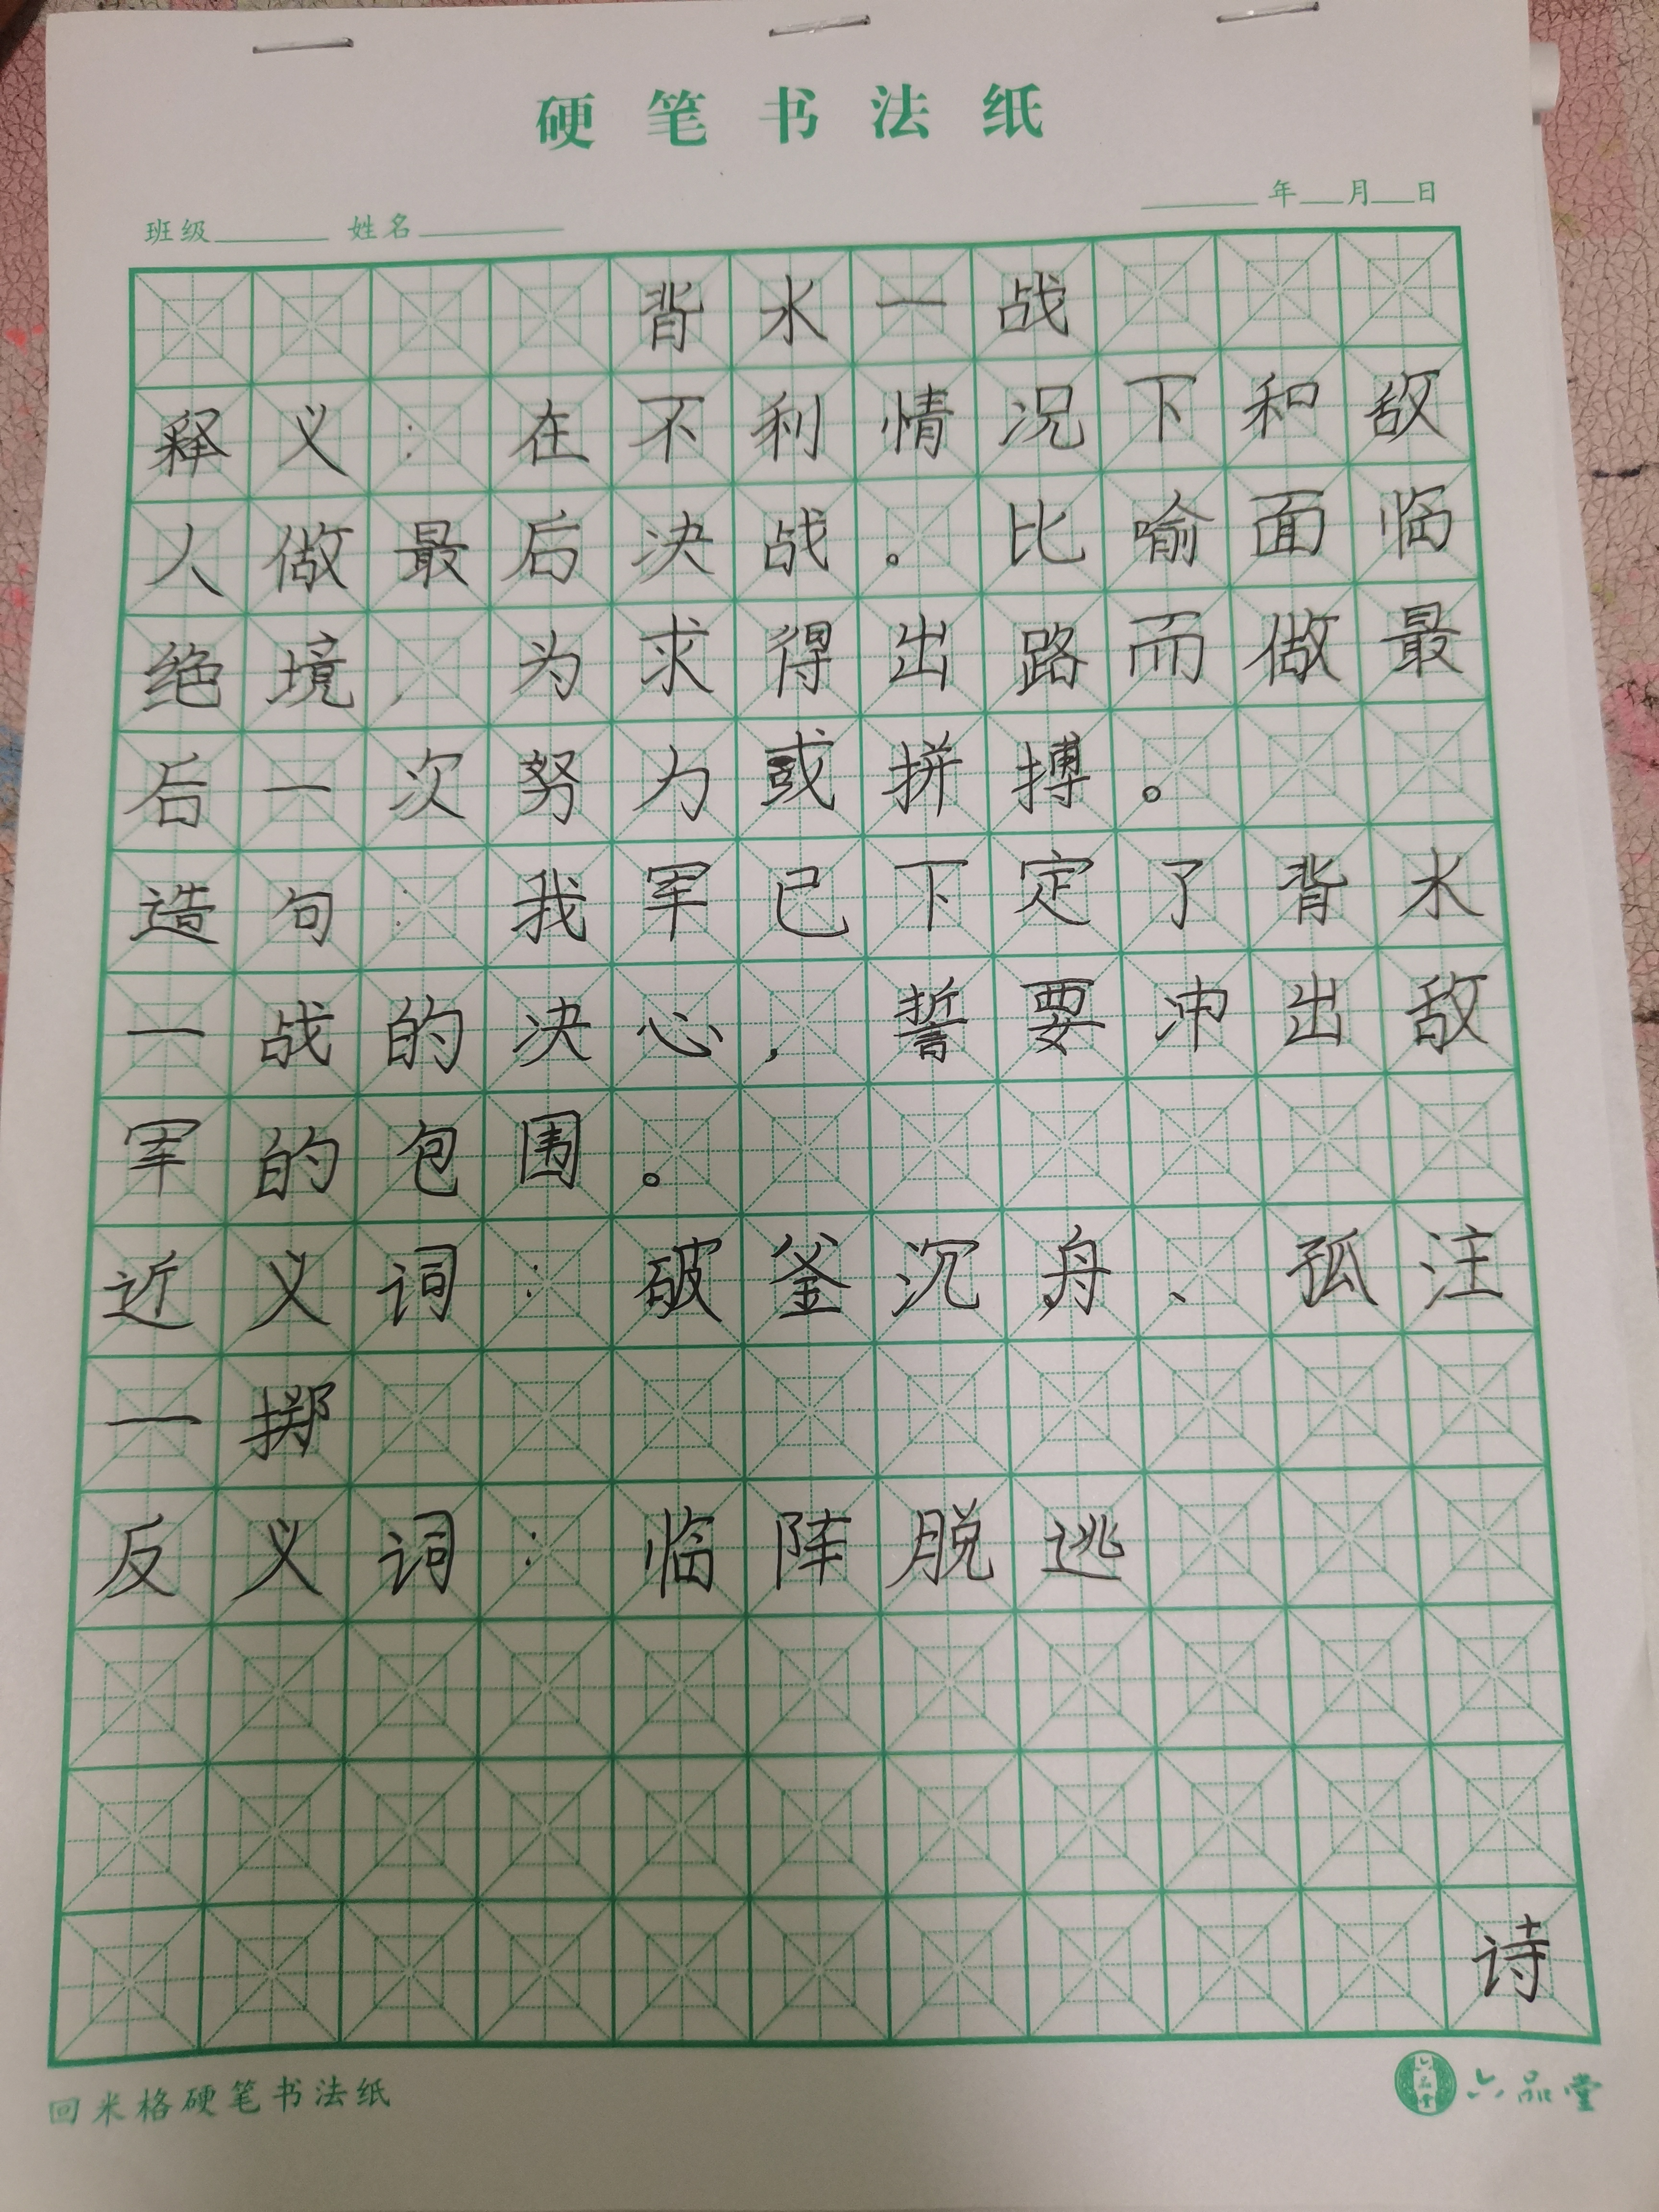 硬笔书法纸
班级 姓名 年 月 日
背水一战
释义：在不利情况下和敌
人做最后决战。比喻面临
绝境，为求得出路而做最
后一次努力或拼搏。
造句：我军已下定了背水
一战的决心，誓要冲出敌
军的包围。
近义词：破釜沉舟、孤注
一掷
反义词：临阵脱逃
诗
回米格硬笔书法纸
六品堂 六品堂